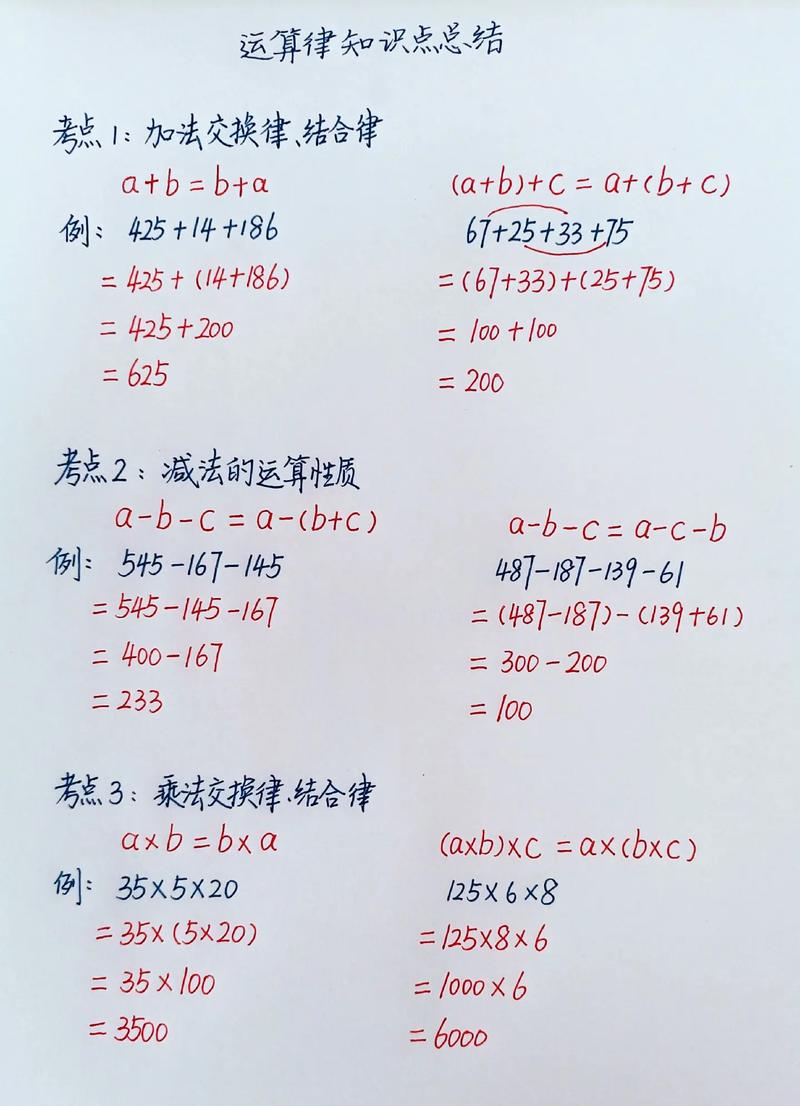 运算律知识点总结
考点1：加法交换律、结合律
a+b=b+a
(a+b)+c=a+(b+c)
例： 425+14+186
67+25+33+75
=425+(14+186)
=(67+33)+(25+75)
=425+200
=100+100
=625
=200
考点2：减法的运算性质
a-b-c=a-(b+c)
a-b-c=a-c-b
例： 545-167-145
487-187-139-61
=545-145-167
=(487-187)-(139+61)
=400-167
=300-200
=233
=100
考点3：乘法交换律、结合律
a×b=b×a
(a×b)×c=a×(b×c)
例： 35×5×20
125×6×8
=35×(5×20)
=125×8×6
=35×100
=1000×6
=3500
=6000